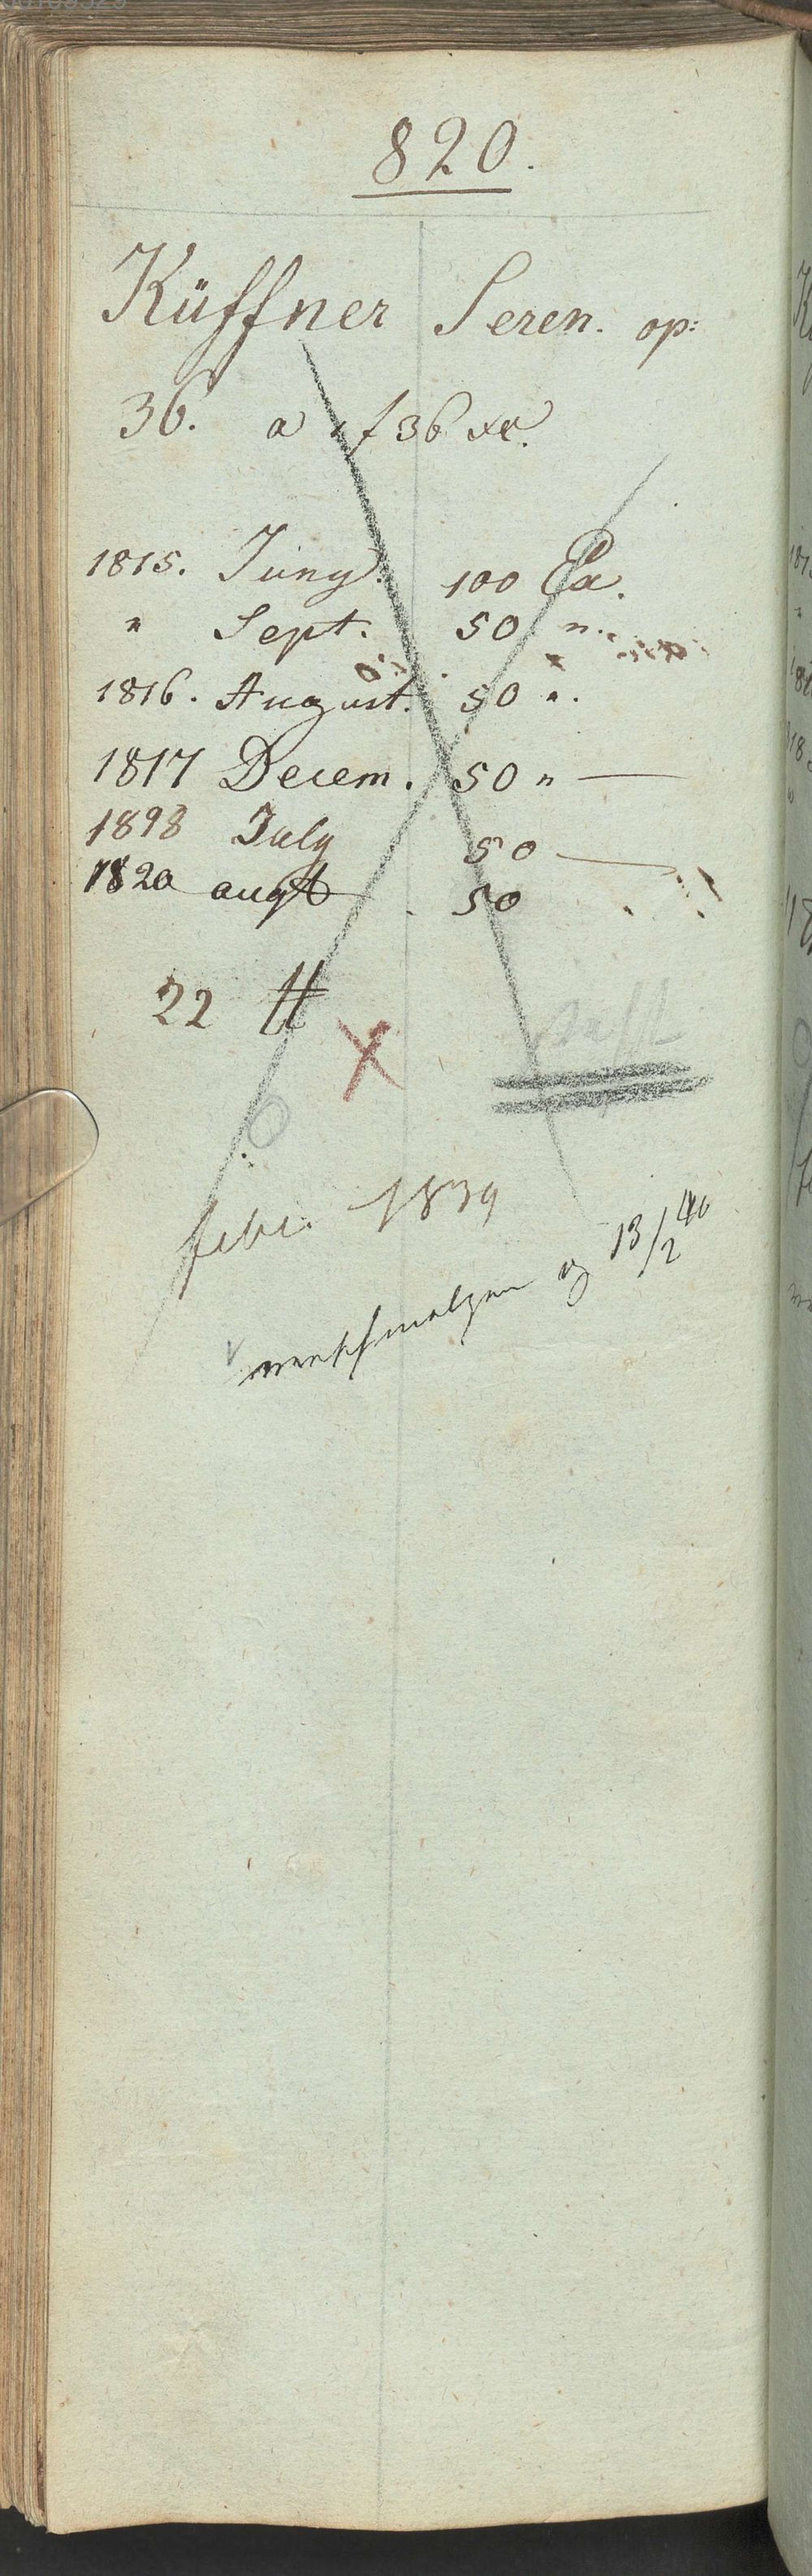 820.
Küffner Seren. op:
36. a 1 f 36 xr.
1815. Juny. 100 Ex.
" Sept. 50 "
1816. August. 50 ".
1817 Decem. 50 " —
1898 July 50 —
1820 augt 50
22 ℔
X
O
febr. 1839
verschmolzen 13/2 40